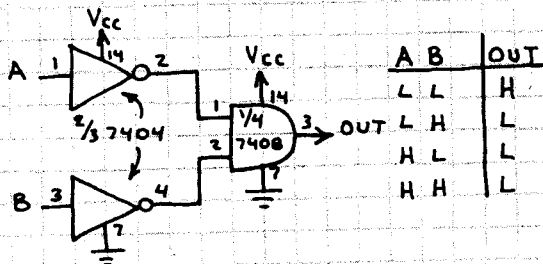 Vcc
14
A 1 2
2/3 7404
B 3 4
7
Vcc
14
1 1/4
2 7408
3 OUT
7
A B OUT
L L H
L H L
H L L
H H L